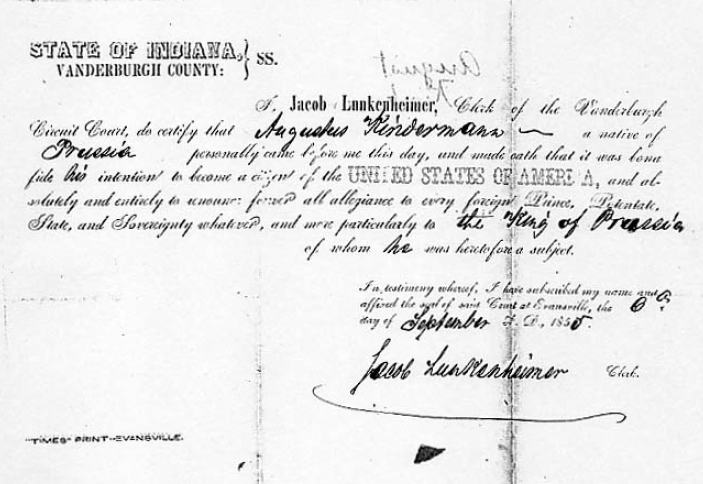 STATE OF INDIANA,
VANDERBURGH COUNTY: } SS.
August
I, Jacob Lunkenheimer, Clerk of the Vanderburgh
Circuit Court, do certify that Augustus Kindermann a native of
Prussia personally came before me this day, and made oath that it was bona
fide his intention to become a citizen of the UNITED STATES OF AMERICA, and ab-
solutely and entirely to renounce forever all allegiance to every foreign Prince, Potentate,
State, and Sovereignty whatever, and more particularly to the King of Prussia
of whom he was heretofore a subject.
In testimony whereof, I have subscribed my name and
affixed the seal of said Court at Evansville, the 6
day of September A. D., 1855.
Jacob Lunkenheimer Clerk.
"TIMES" PRINT--EVANSVILLE.